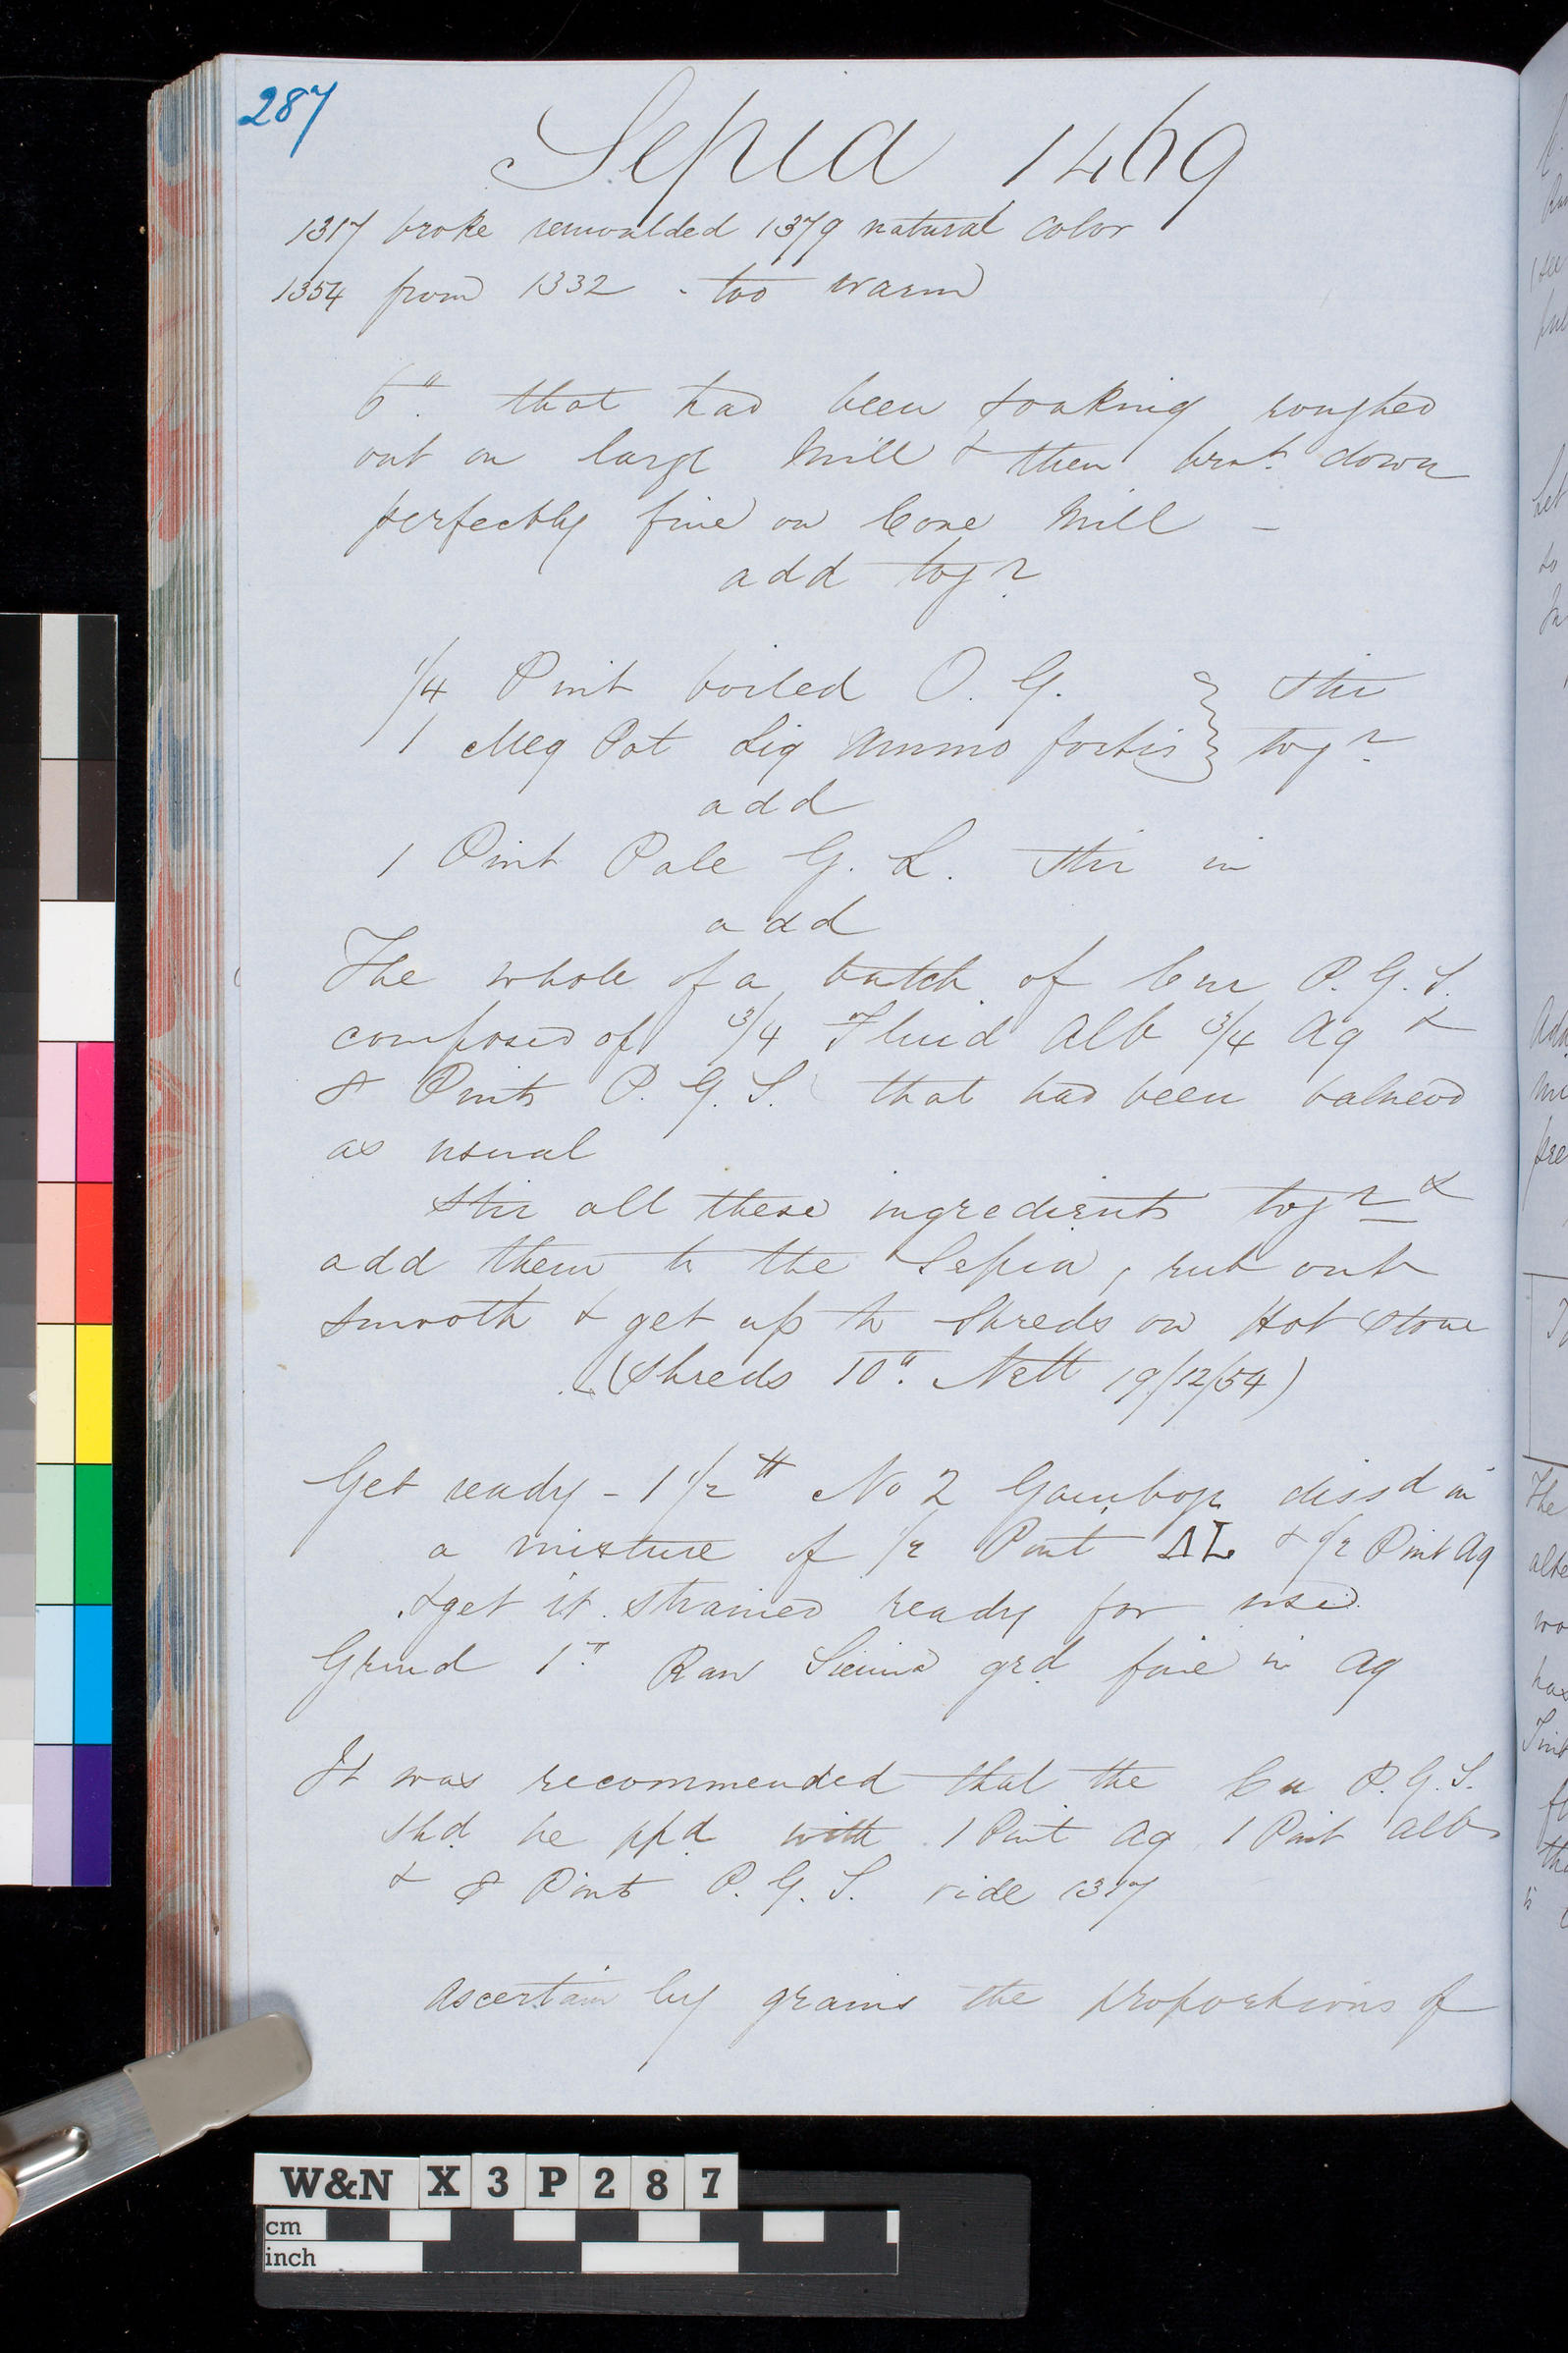 287
Sepia 1469
1317 broke remoulded 1379 natural color
1354 from 1332 . too warm
6". that had been soaking roughed
out on large Mill & then brot. down
perfectly fine on Cone Mill -
add togr.
1/4 Pint boiled O. G. } Stir
1 Meg Pot Liq Ammo fortis } togr.
add
1 Pint Pale G. L. Stir in
add
The whole of a batch of P. G. S.
composed of 3/4 Fluid Alb 3/4 Aq &
8 Pints P. G. S. that had been balneod
as usual
Stir all these ingredients togr. &
add them to the Sepia, rub out
smooth & get up to Shreds on Hot Stone
(Shreds 10". Nett 19/12/54)
Get ready - 1 1/2 # No 2 Gamboge dissd in
a mixture of 1/2 Pint ΔL & 1/2 Pint Aq
& get it strained ready for use.
Grind 1". Raw Sienna grd. fine in Aq
It was recommended that the P. G. S.
shd. be ppd. with 1 Pint Aq 1 Pint Alb
& 8 Pints P. G. S. vide 1317
Ascertain by grains the proportions of
W&N X 3 P 2 8 7
cm
inch